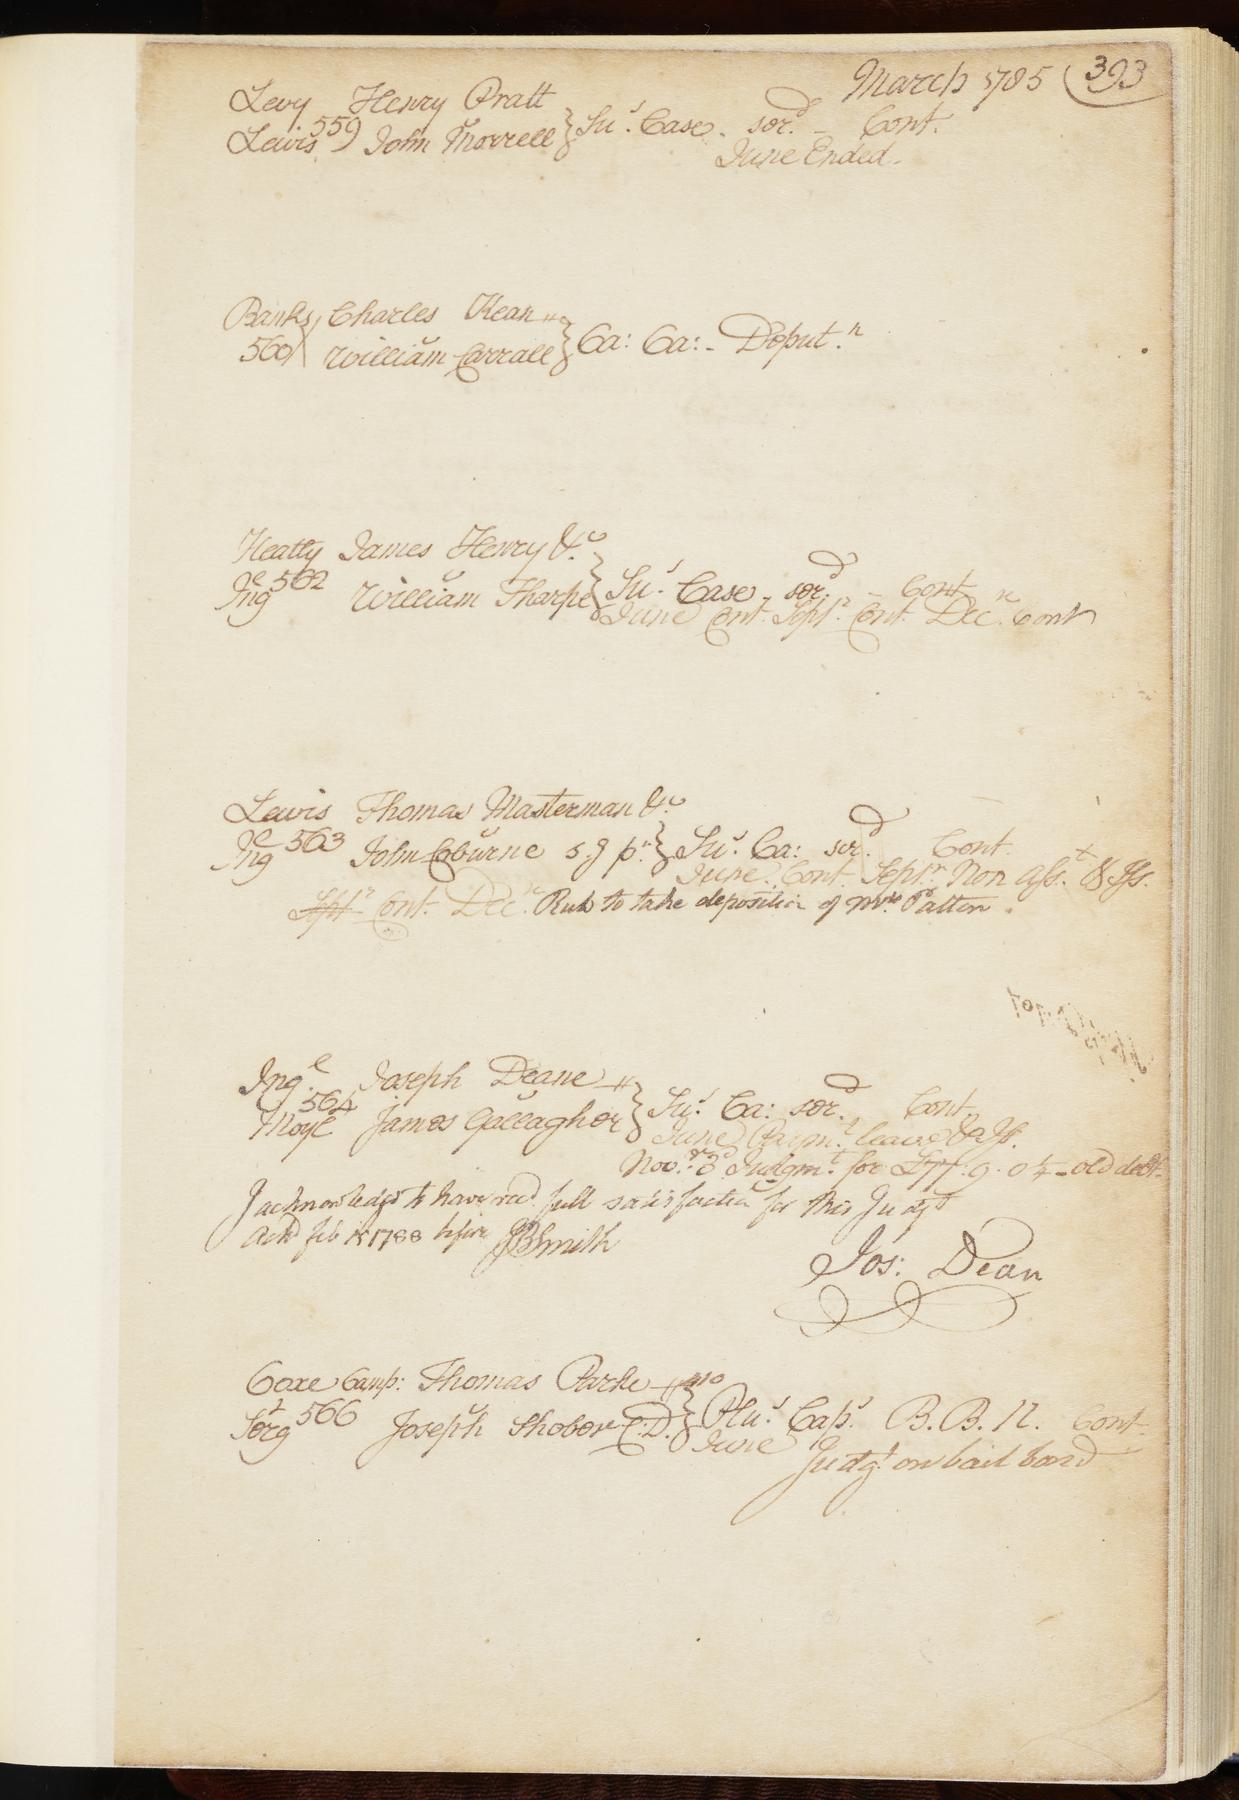 March 1785 (393
Levy Henry Pratt
Lewis 559 John Morrell } Su.s Case. ser.d - Cont.
June Ended.
Banks Charles Kean
560 William Carrall } Ca: Ca: - Deput.n
Heatly James Henry &c
Ing.e 562 William Tharpe } Su.s Case. ser.d - Cont
June Cont. Sept.r Cont. Dec.r Cont
Lewis Thomas Masterman &c
Ing.e 563 John Coburne s. g p.n } Su.s Ca: ser.d Cont.
June Cont. Sept.r Non Ass.t & Iss.
Sept.r Cont. Dec.r Rule to take deposition of Patton.
Ing.e Joseph Deane
564
Moyl James Gallagher } Su.s Ca: ser.d Cont.
June Paym.t leave & Iss.
Nov.r 3.d Judgm.t for £77. 9. 0 1/4 - old debt.
I acknowledge to have rec.d full satisfaction for this Judg.t
Ack.d Feb 1788 before JBSmith
Jos: Dean
Coxe Camp: Thomas Parke
Serg.t 566 Joseph Shober C.D. } Plu.s Cap.s B. B. 12. Cont.
June Judg.t on bail bond